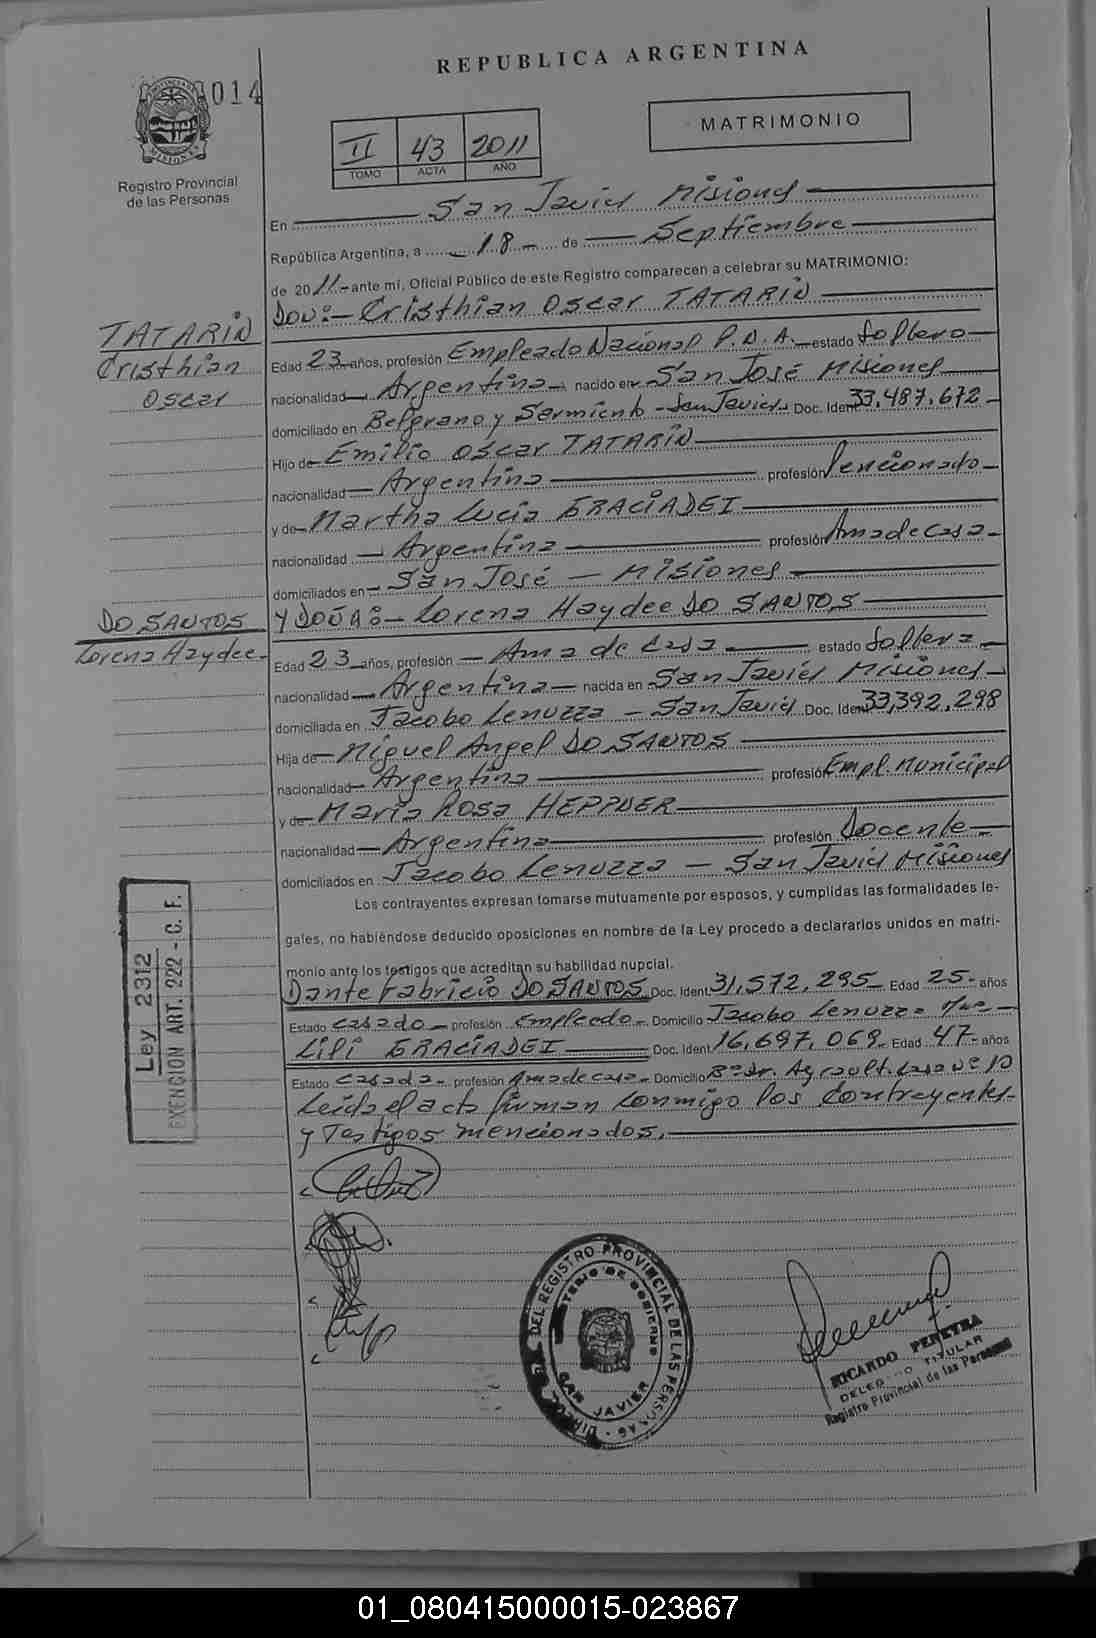 REPUBLICA ARGENTINA
014
MATRIMONIO
II 43 2011
TOMO ACTA AÑO
Registro Provincial
de las Personas
En San Javier Misiones
República Argentina, a 18 - de Septiembre
de 2011 - ante mí, Oficial Público de este Registro comparecen a celebrar su MATRIMONIO:
Don:- Cristhian Oscar TATARIN
TATARIN
Cristhian
Oscar
Edad 23 años, profesión Empleado Nacional P.N.A. estado Soltero
nacionalidad Argentina nacido en San José Misiones
domiciliado en Belgrano y Sarmiento - San Javier Doc. Ident 33.487.672
Hijo de Emilio Oscar TATARIN
nacionalidad Argentina profesión Pencionado
y de Martha Lucia GRACIADEI
nacionalidad Argentina profesión Ama de Casa
domiciliados en San José - Misiones
Y DOÑA:- Lorena Haydee DO SANTOS
DO SANTOS
Lorena Haydee
Edad 23 años, profesión Ama de Casa estado Soltera
nacionalidad Argentina nacida en San Javier Misiones
domiciliada en Jacobo Lenuzza - San Javier Doc. Ident 33,392,298
Hija de Miguel Angel DO SANTOS
nacionalidad Argentina profesión Empl. Municipal
y de María Rosa HEPPNER
nacionalidad Argentina profesión Docente
domiciliados en Jacobo Lenuzza - San Javier Misiones
Los contrayentes expresan tomarse mutuamente por esposos, y cumplidas las formalidades le-
gales, no habiéndose deducido oposiciones en nombre de la Ley procedo a declararlos unidos en matri-
monio ante los testigos que acreditan su habilidad nupcial.
Dante Fabricio DO SANTOS Doc. Ident 31,572,295 Edad 25 años
Estado Casado profesión Empleado Domicilio Jacobo Lenuzza
Lili GRACIADEI Doc. Ident 16,697,069 Edad 47 años
Estado Casada profesión Ama de casa Domicilio B° Dr. Agroult. Casa N° 10
Leída el acta firman conmigo los Contrayentes
y Testigos mencionados.
Ley 2312
EXENCION ART. 222 - C. F.
DEL REGISTRO PROVINCIAL DE LAS PERSONAS
DE GOBIERNO
SAN JAVIER
RICARDO PEREYRA
DELEGADO TITULAR
Registro Provincial de las Personas
01_080415000015-023867